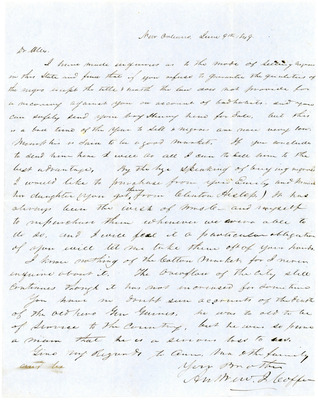 New Orleans, June 9th, 1849.
Dr Alex.
I have made inquiries as to the mode of selling negroes
in this State and find that if you refuse to guarantee the qualities of
the negro except the title & health the law does not provide for
a recovery against you on account of bad habits and you
can safely send your boy Henry here for sale. But this
is a bad time of the year to sell negroes are now very low.
Month he is sure to be a good market. If you conclude
to send him here I will do all I can to sell him to the
best advantage. By the bye speaking of buying negroes
I would like to purchase from you Emily and
her daughter (if you get from
always been the wish of and myself
to repurchase them whenever we were able to
do so, and I will feel it a particular obligation
if you will let me take them off of your hands.
I know nothing of the Cotton Market for I never
inquire about it. The Overflow of the City still
continues though it has not increased for sometime
You have no doubt seen accounts of the death
of the old hero Gen Gaines. he was to old to be
of service to the Country, but he was so pure
a man that he is a serious loss to
Give my regards to and the family
Your Brother
Andrew J. Coffee